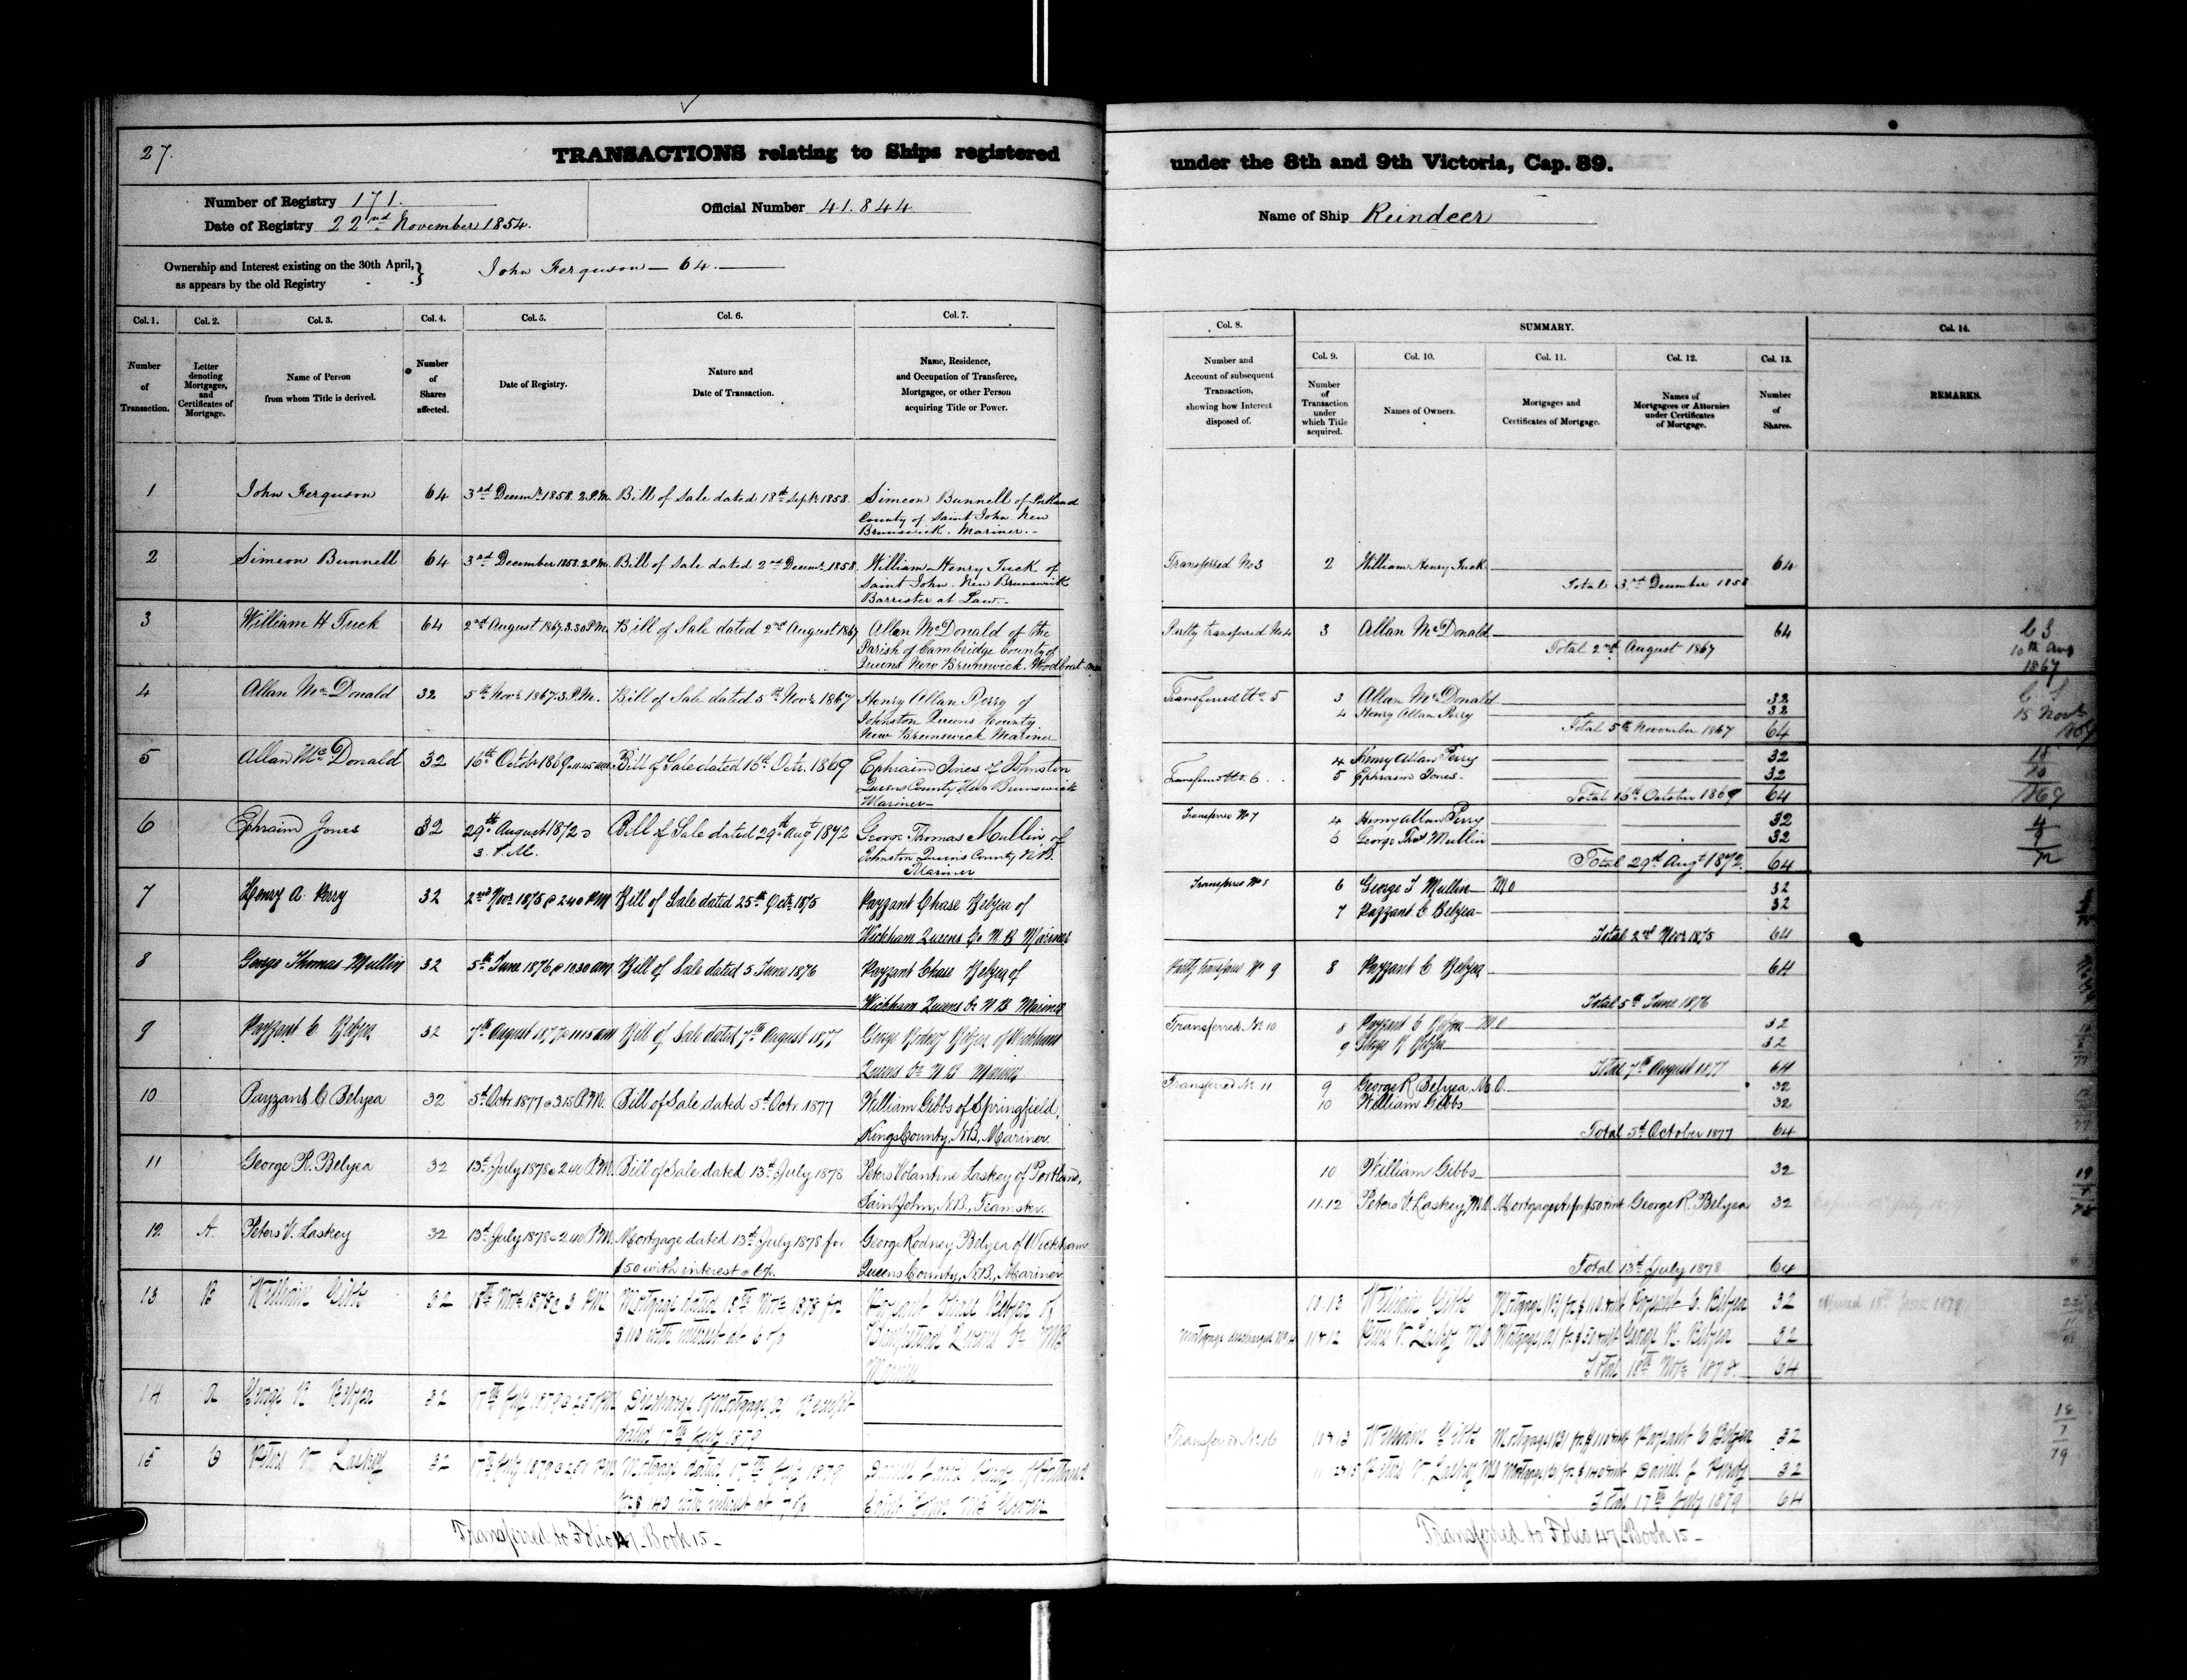 27.
TRANSACTIONS relating to Ships registered
Number of Registry 171.
Date of Registry 22nd November 1854.
Official Number 41.844
Ownership and Interest existing on the 30th April, as appears by the old Registry } John Ferguson — 64.
Col. 1. Col. 2. Col. 3. Col. 4. Col. 5. Col. 6. Col. 7.
Number of Transaction.
Letter denoting Mortgages, and Certificates of Mortgage.
Name of Person from whom Title is derived.
Number of Shares affected.
Date of Registry.
Nature and Date of Transaction.
Name, Residence, and Occupation of Transferee, Mortgagee, or other Person acquiring Title or Power.
1 John Ferguson 64 3rd Decmr. 1858. 2 P.M. Bill of Sale dated 18th Septr. 1858. Simeon Bunnell of Portland
County of Saint John New
Brunswick. Mariner.
2 Simeon Bunnell 64 3rd December 1858. 2 P.M. Bill of Sale dated 2nd Decmr. 1858. William Henry Tuck of
Saint John. New Brunswick
Barrister at Law.
3 William H Tuck 64 2nd August 1867. 3.30 P.M. Bill of Sale dated 2nd August 1867 Allan McDonald of the
Parish of Cambridge County of
Queens New Brunswick. Woodboat-man
4 Allan McDonald 32 5th Novr. 1867. 3. P.M. Bill of Sale dated 5th Novr. 1867 Henry Allan Perry of
Johnston Queens County.
New Brunswick Mariner
5 Allan McDonald 32 16th Octobr 1869 11.45 am Bill of Sale dated 16th Octr. 1869 Ephraim Jones of Johnston
Queens County New Brunswick
Mariner
6 Ephraim Jones 32 29th August 1872 @ Bill of Sale dated 29th Augt 1872 George Thomas Mullin of
3. P.M. Johnston Queens County N.B.
Mariner
7 Henry A Perry 32 2nd Novr 1875 @ 2.40 PM Bill of Sale dated 25th Octr 1875 Payzant Chase Belyea of
Wickham Queens Co N B Mariner
8 George Thomas Mullin 32 5th June 1876 @ 10.30 am Bill of Sale dated 5 June 1876 Payzant Chase Belyea of
Wickham Queens Co N B Mariner
9 Payzant C Belyea 32 7th August 1877 @ 11.15 am Bill of Sale dated 7th August 1877 George Rodney Belyea of Wickham
Queens Co N B Mariner
10 Payzant C Belyea 32 5th Octr. 1877 @ 3.15 P.M. Bill of Sale dated 5th Octr. 1877 William Gibbs of Springfield,
Kings County, N.B., Mariner.
11 George R. Belyea 32 13th July 1878 @ 2.40 P.M. Bill of Sale dated 13th July 1878 Peters Volantine Laskey of Portland,
Saint John, N.B., Teamster.
12 A. Peters V. Laskey 32 13th July 1878 @ 2.40 P.M. Mortgage dated 13th July 1878 for George Rodney Belyea of Wickham
$50 with interest @ 6%. Queens County, N.B., Mariner
13 B William Gibbs 32 18th Novr 1878 @ 3 PM Mortgage dated 18th Novr 1878 for Payzant Chase Belyea of
$110 with interest at 6% Hampstead Queens Co NB
Mariner
14 A George R Belyea 32 17th July 1879 @ PM Discharge of Mortgage (A) Receipt
dated 17th July 1879
15 C Peters V Laskey 32 17th July 1879 PM Mortgage dated 17th July 1879 Daniel Purdy of Portland
for $140 with interest at 7% Saint John NB
Transferred to Folio 47 Book 15 –
under the 8th and 9th Victoria, Cap. 89.
Name of Ship Reindeer
Col. 8. SUMMARY. Col. 14.
Col. 9. Col. 10. Col. 11. Col. 12. Col. 13.
Number and Account of subsequent Transaction, showing how Interest disposed of.
Number of Transaction under which Title acquired.
Names of Owners.
Mortgages and Certificates of Mortgage.
Names of Mortgagees or Attornies under Certificates of Mortgage.
Number of Shares.
REMARKS.
Transferred No 3 2 William Henry Tuck 64
Total 3rd December 1858
Partly transferred No 4 3 Allan McDonald 64
Total 2nd August 1867
10th Aug
1867
Transferred No. 5 3 Allan McDonald 32
4 Henry Allan Perry 32
Total 5th November 1867 64
15 Novr
4 Henry Allan Perry 32
Transferred No. 6 5 Ephraim Jones 32
Total 16th October 1869 64
18
10
1869
Transferred No 7 4 Henry Allan Perry 32
6 George Thos. Mullin 32
Total 29th Augt 1872. 64
4
9
72
Transferred No 8 6 George T Mullin M O 32
7 Payzant C Belyea 32
Total 2nd Novr 1875 64
Partly transferred No 9 8 Payzant C Belyea 64
Total 5th June 1876
Transferred No 10 8 Payzant C Belyea M O 32
9 George R Belyea 32
Total 7th August 1877 64
Transferred No 11 9 George R. Belyea, M.O. 32
10 William Gibbs 32
Total 5th October 1877 64
10 William Gibbs 32
11.12 Peters V. Laskey M.O. Mortgage A for $50 & int George R. Belyea 32
Total 13th July 1878 64
10.13 William Gibbs Mortgage (B) for $110 & int Payzant C. Belyea 32
Mortgage discharged No 14 11.12 Peters V. Laskey M O Mortgage (A) for $50 & int George R. Belyea 32
Total 18th Novr 1878. 64
18
7
79
Transferred No 16 10.13 William Gibbs Mortgage (B) for $110 & int Payzant C Belyea 32
Peters V. Laskey M O Mortgage (C) for $140 & int Daniel J Purdy 32
Total 17th July 1879 64
Transferred to Folio 47 Book 15 –